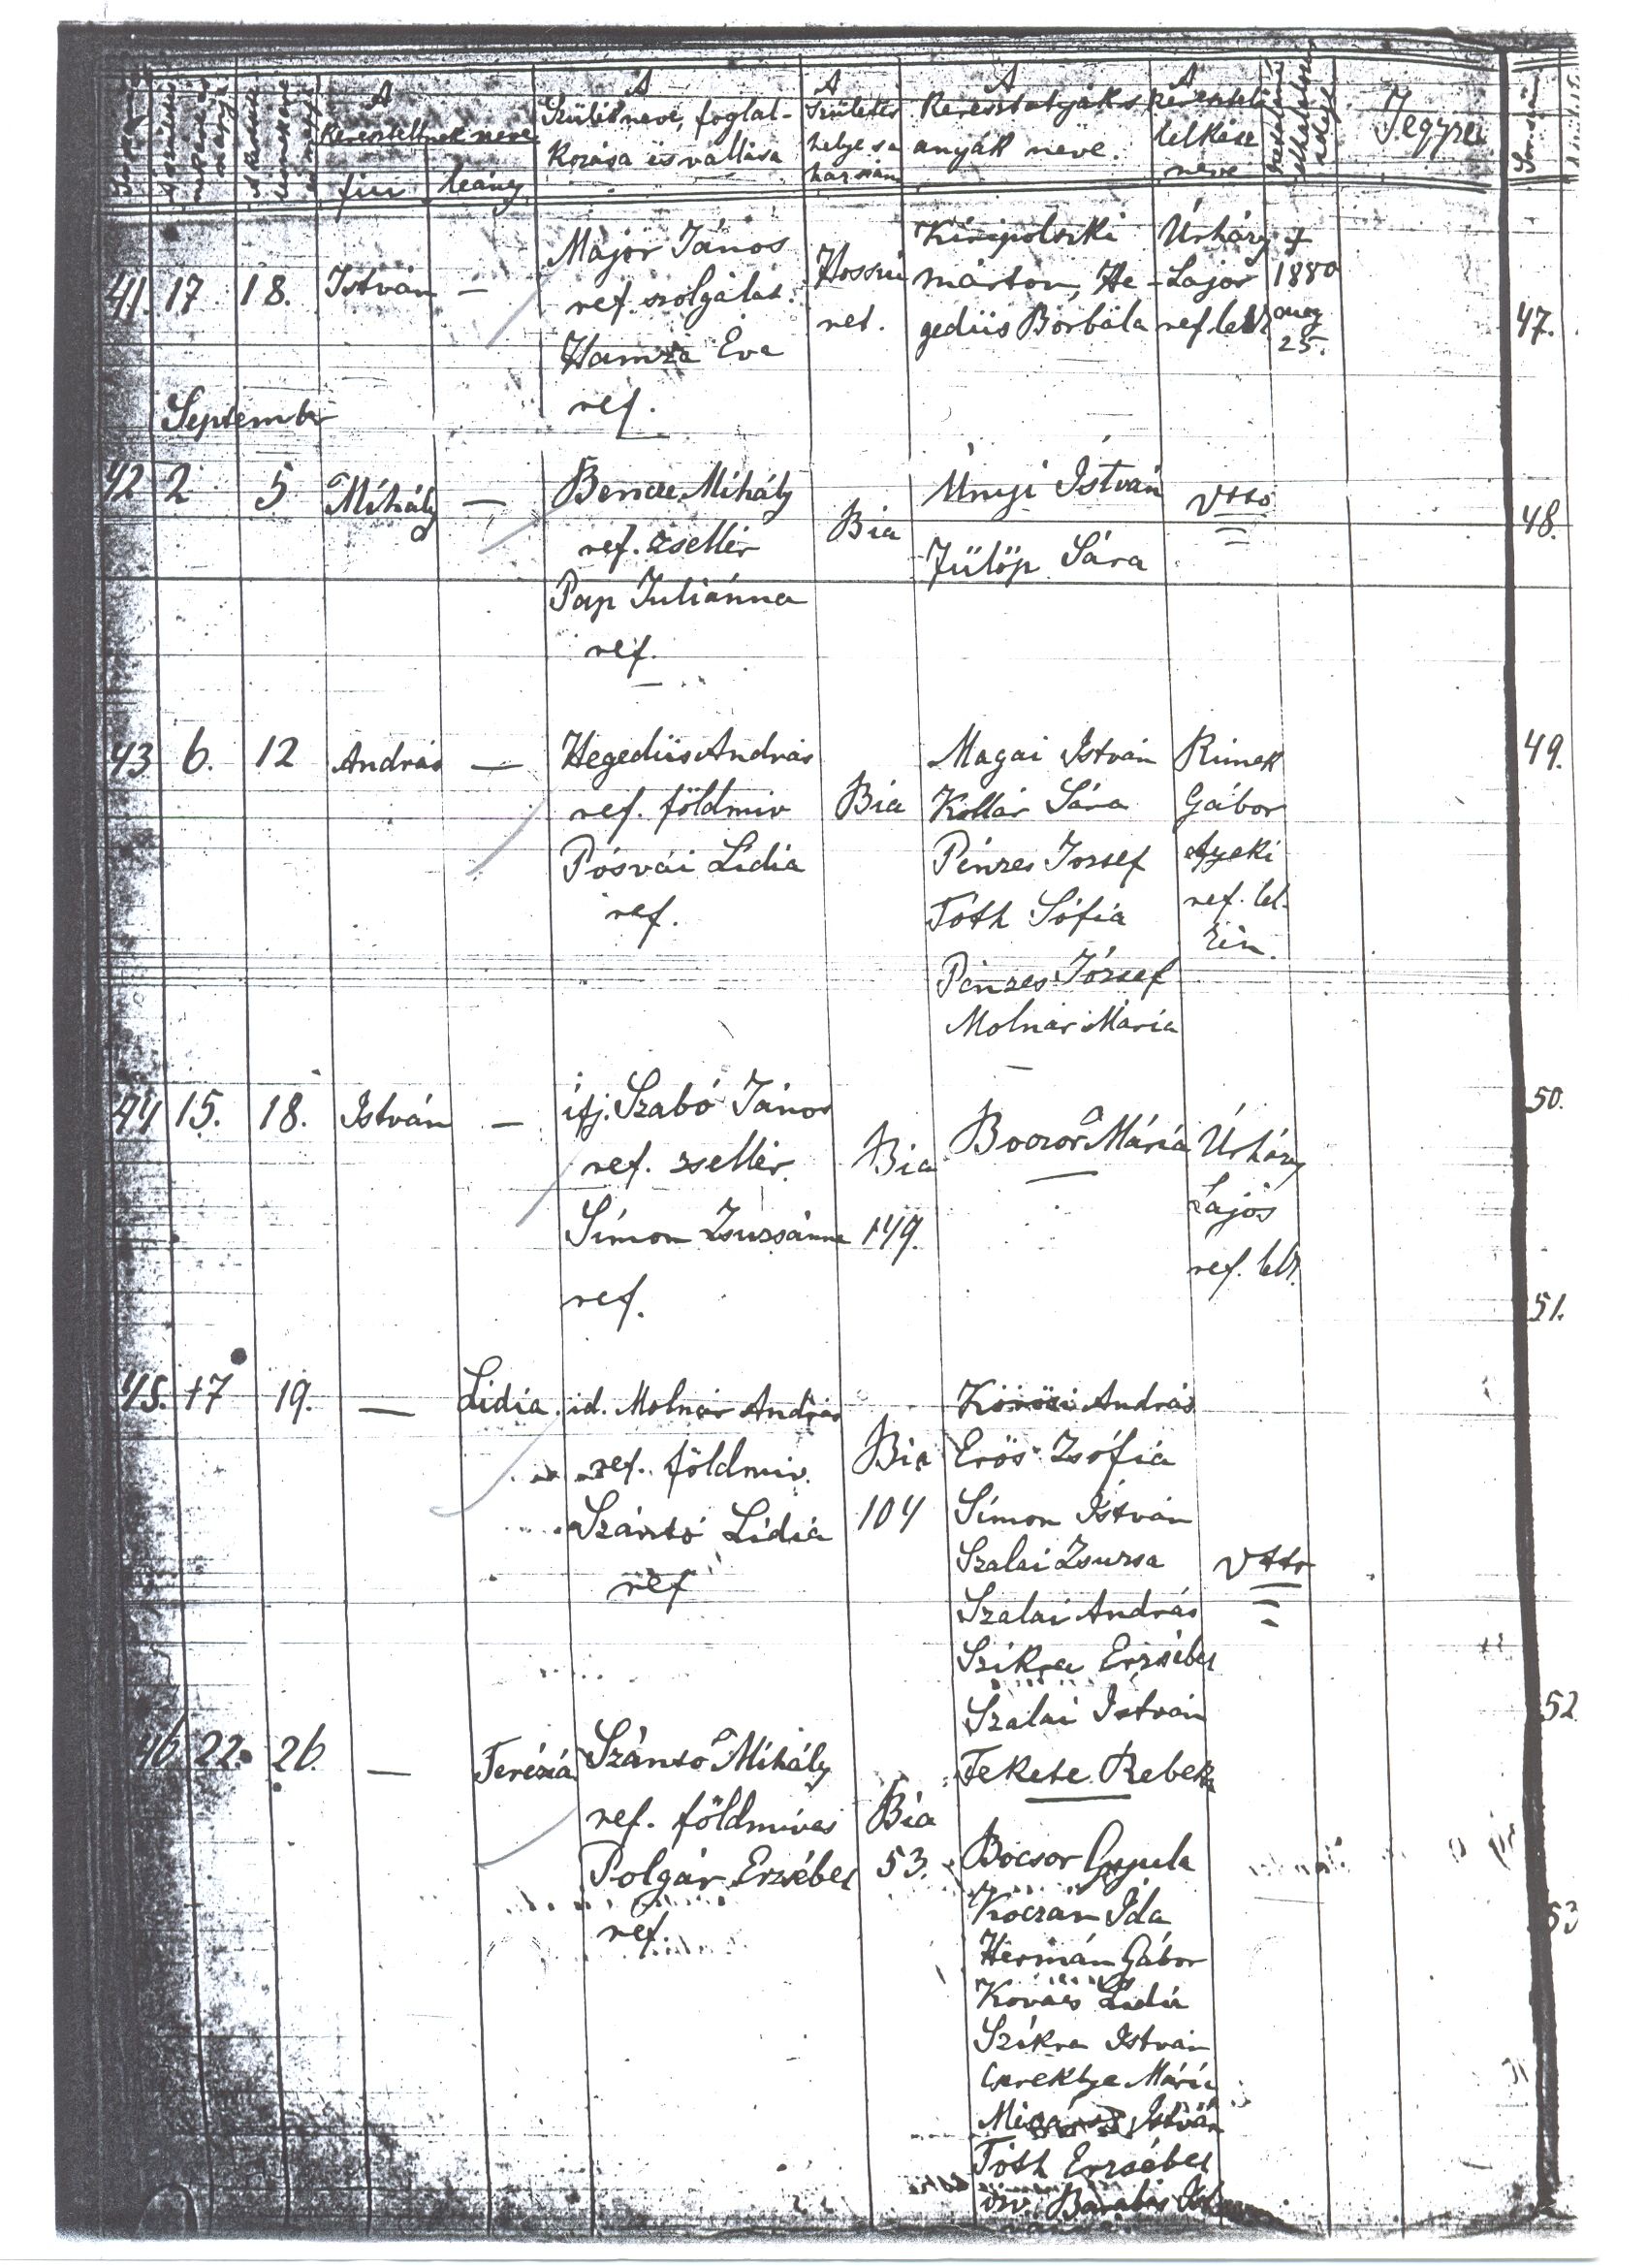 A kereszteltnek neve
fiu leány
A Szülék neve, foglal-
kozása és vallása
A születés
helye s a
házszám
A Keresztatyák s
anyák neve.
A keresztelő
lelkész
neve
Jegyzet
41. 17 18. István —
Major János
ref. szolgálat.
Hamza Éva
ref.
Hosszú
ret.
Kiripolszki
Márton, He-
gedüs Borbála
Úrházy
Lajos
ref. lelk.
†
1880
aug
25.
47.
September
42 2 5 Mihály —
Bencze Mihály
ref. zsellér
Pap Juliánna
ref.
Bia
Únyi István
Fülöp Sára
Utto
48.
43 6. 12 András —
Hegedüs András
ref. földmiv
Pósvái Lidia
ref.
Bia
Magai István
Kollár Sára
Pénzes József
Tóth Sófia
Pénzes József
Molnár Mária
Rimek
Gábor
ref. lel.
49.
44 15. 18. István —
ifj. Szabó János
ref. zsellér.
Simon Zsuzsánna
ref.
Bia
149.
Boczor Mária
Úrházy
Lajos
ref. lelk.
50.
51.
45. 17 19. — Lidia.
id. Molnár András
ref. földmiv.
Szántó Lidia
ref
Bia
104
Körösi András
Erös Zsófia
Simon István
Szalai Zsuzsa
Szalai András
Szikra Erzsébet
Szalai István
Fekete Rebeka
Utto
52.
46. 22. 26. — Terézia
Szántó Mihály
ref. földmives
Polgár Erzsébet
ref.
Bia
53.
Bocsor Gyula
Koczán Ida
Hermán Gábor
Kovács Lidia
Szikra István
Cserektye Mária
István
Tóth Erzsébet
özv. Barabás
53